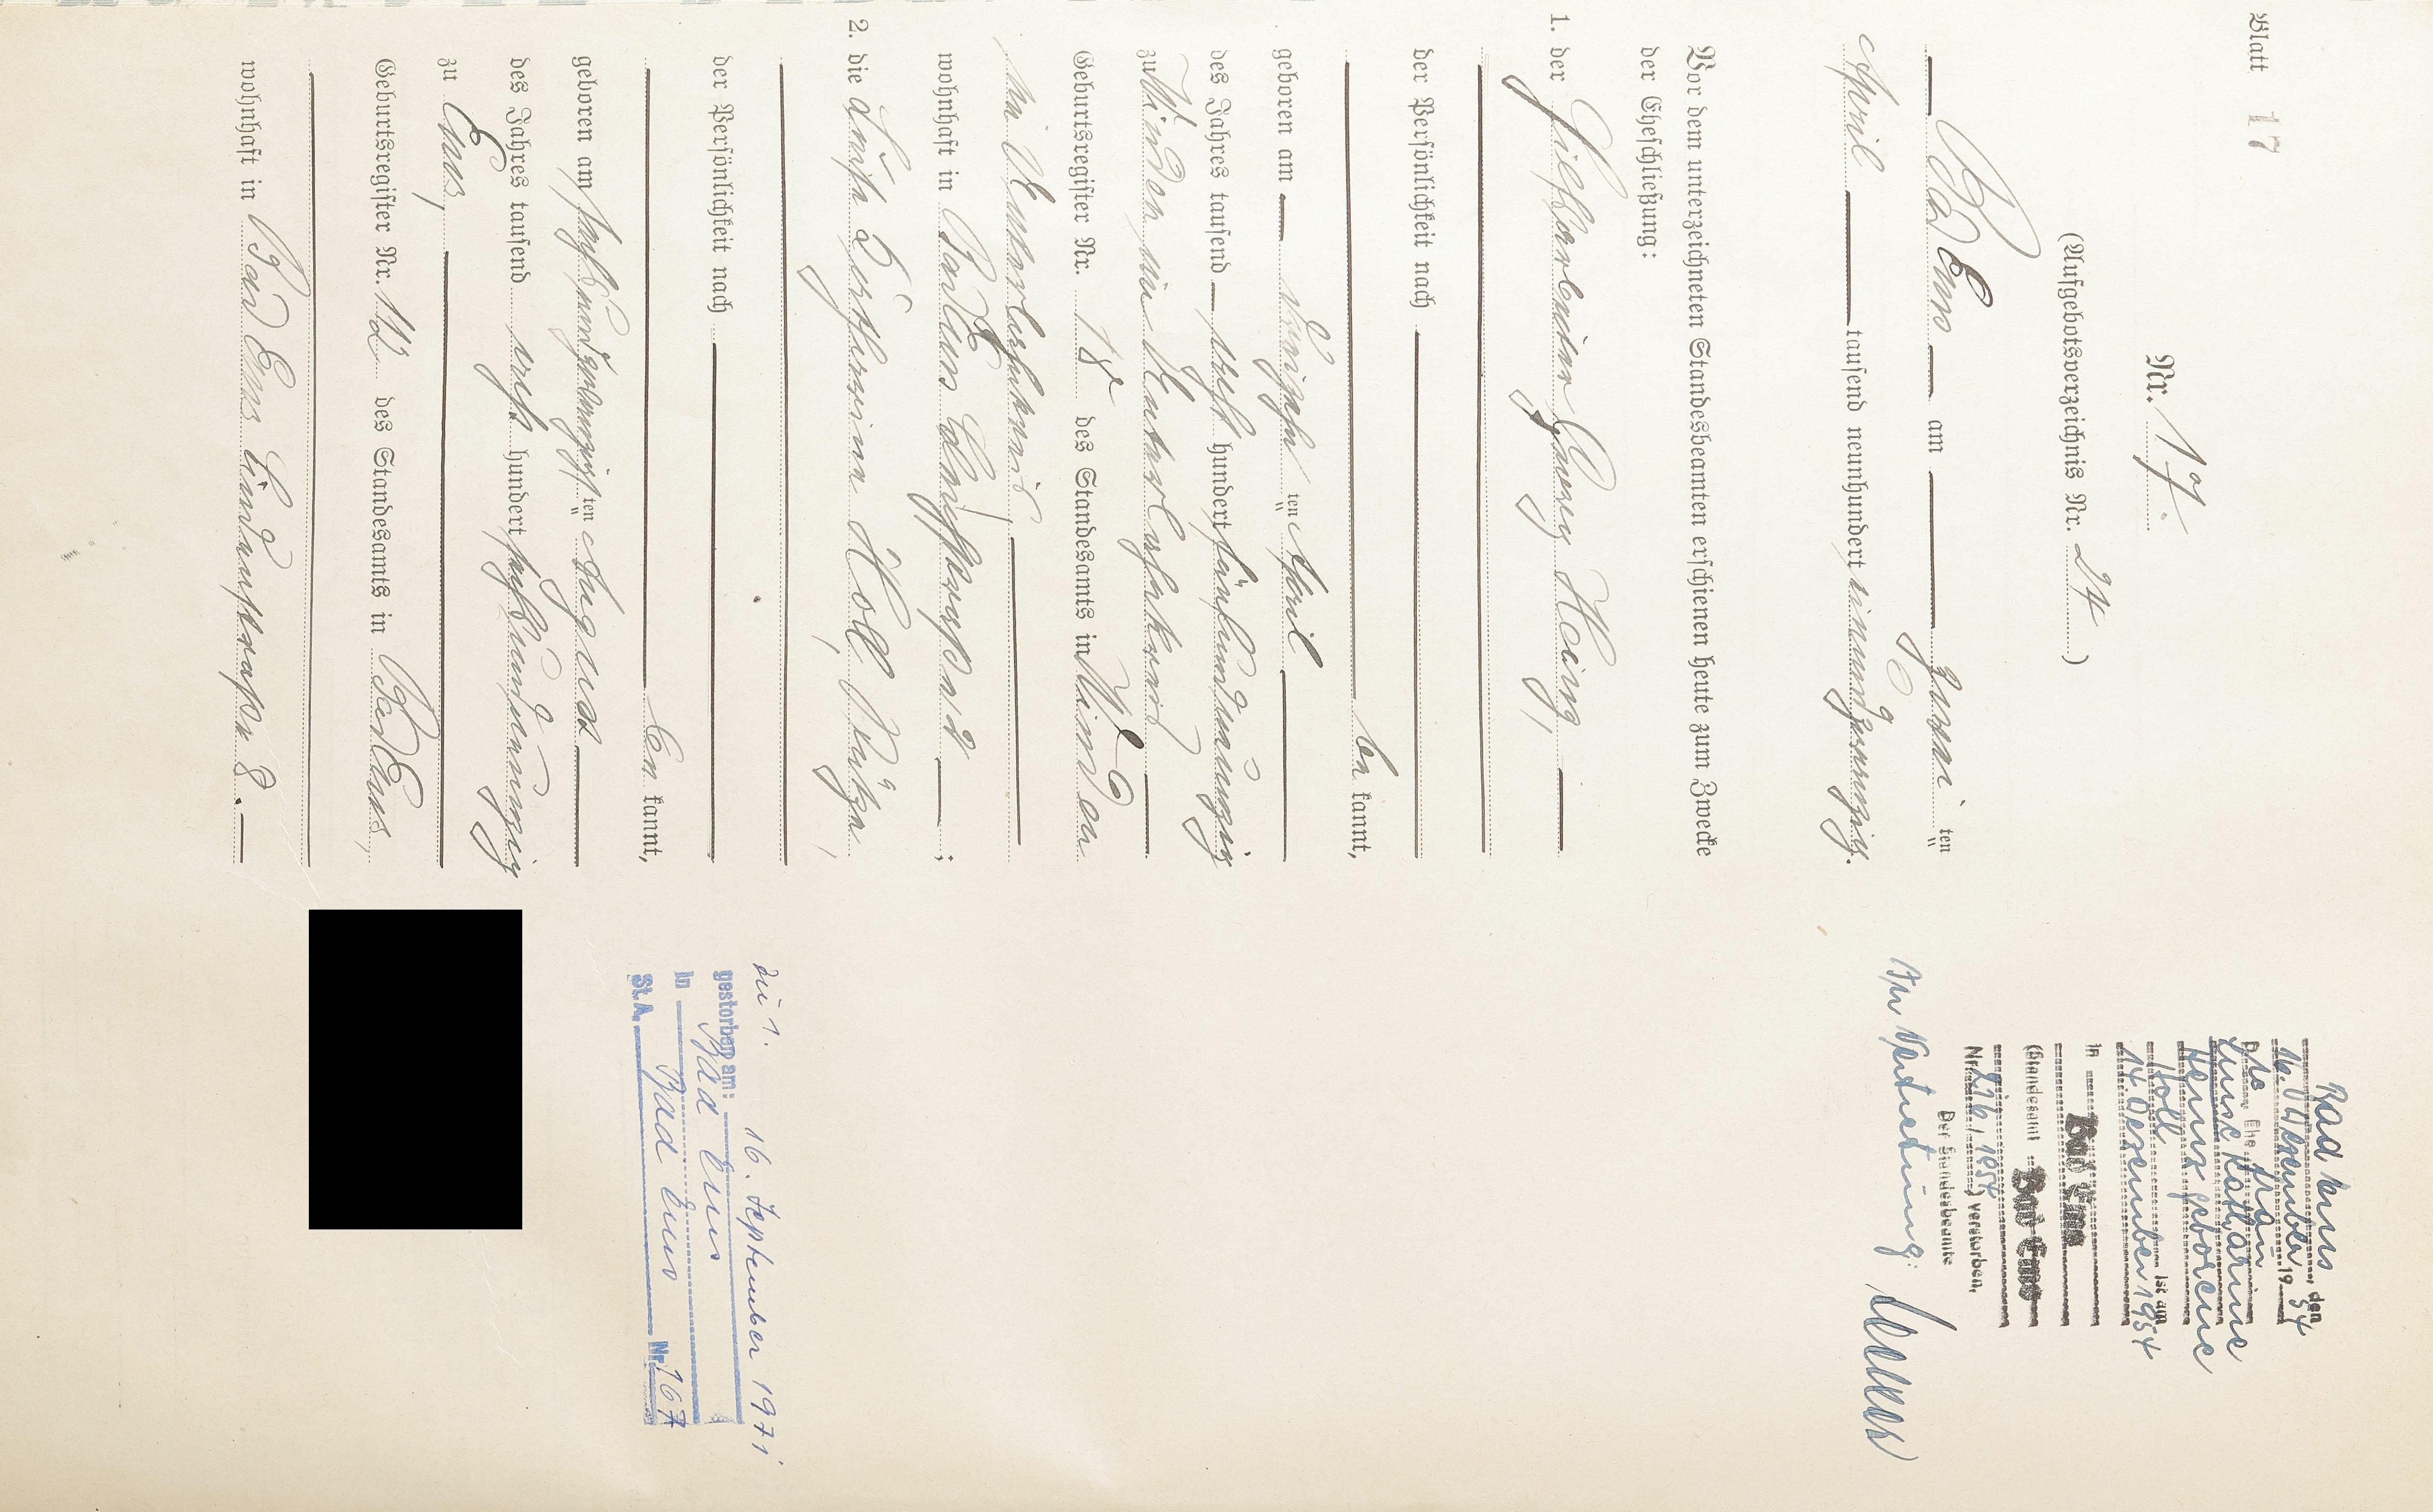 Blatt 17
Nr. 17.
(Aufgebotsverzeichnis Nr. 24)
Bad Ems am zwei ten
April tausend neunhundert einundzwanzig.
Vor dem unterzeichneten Standesbeamten erschienen heute zum Zwecke
der Eheschließung:
1. der Georg Heinz,
der Persönlichkeit nach
be kannt,
geboren am ten April
des Jahres tausend acht hundert fünfundneunzig
zu Winden im Unterlahnkreis
Geburtsregister Nr. 18 des Standesamts in Winden
im Unterlahnkreis,
wohnhaft in Bad Ems
2. die Katharina Holl
der Persönlichkeit nach
be kannt,
geboren am sechsundzwanzigsten August
des Jahres tausend acht hundert sechsundneunzig
zu Ems,
Geburtsregister Nr. des Standesamts in Bad Ems,
wohnhaft in Bad Ems Lindenstrasse 8.
Bad Ems, den
16. Dezember 19 54
Die Ehefrau
Luise Katharine
Heinz geborene
Holl ist am
14. Dezember 1954
in Bad Ems
(Standesamt Bad Ems
Nr. 226/1954) verstorben.
Der Standesbeamte
In Vertretung:
Zu 1.
gestorben am: 16. September 1971
in Bad Ems
St.A. Bad Ems Nr. 167